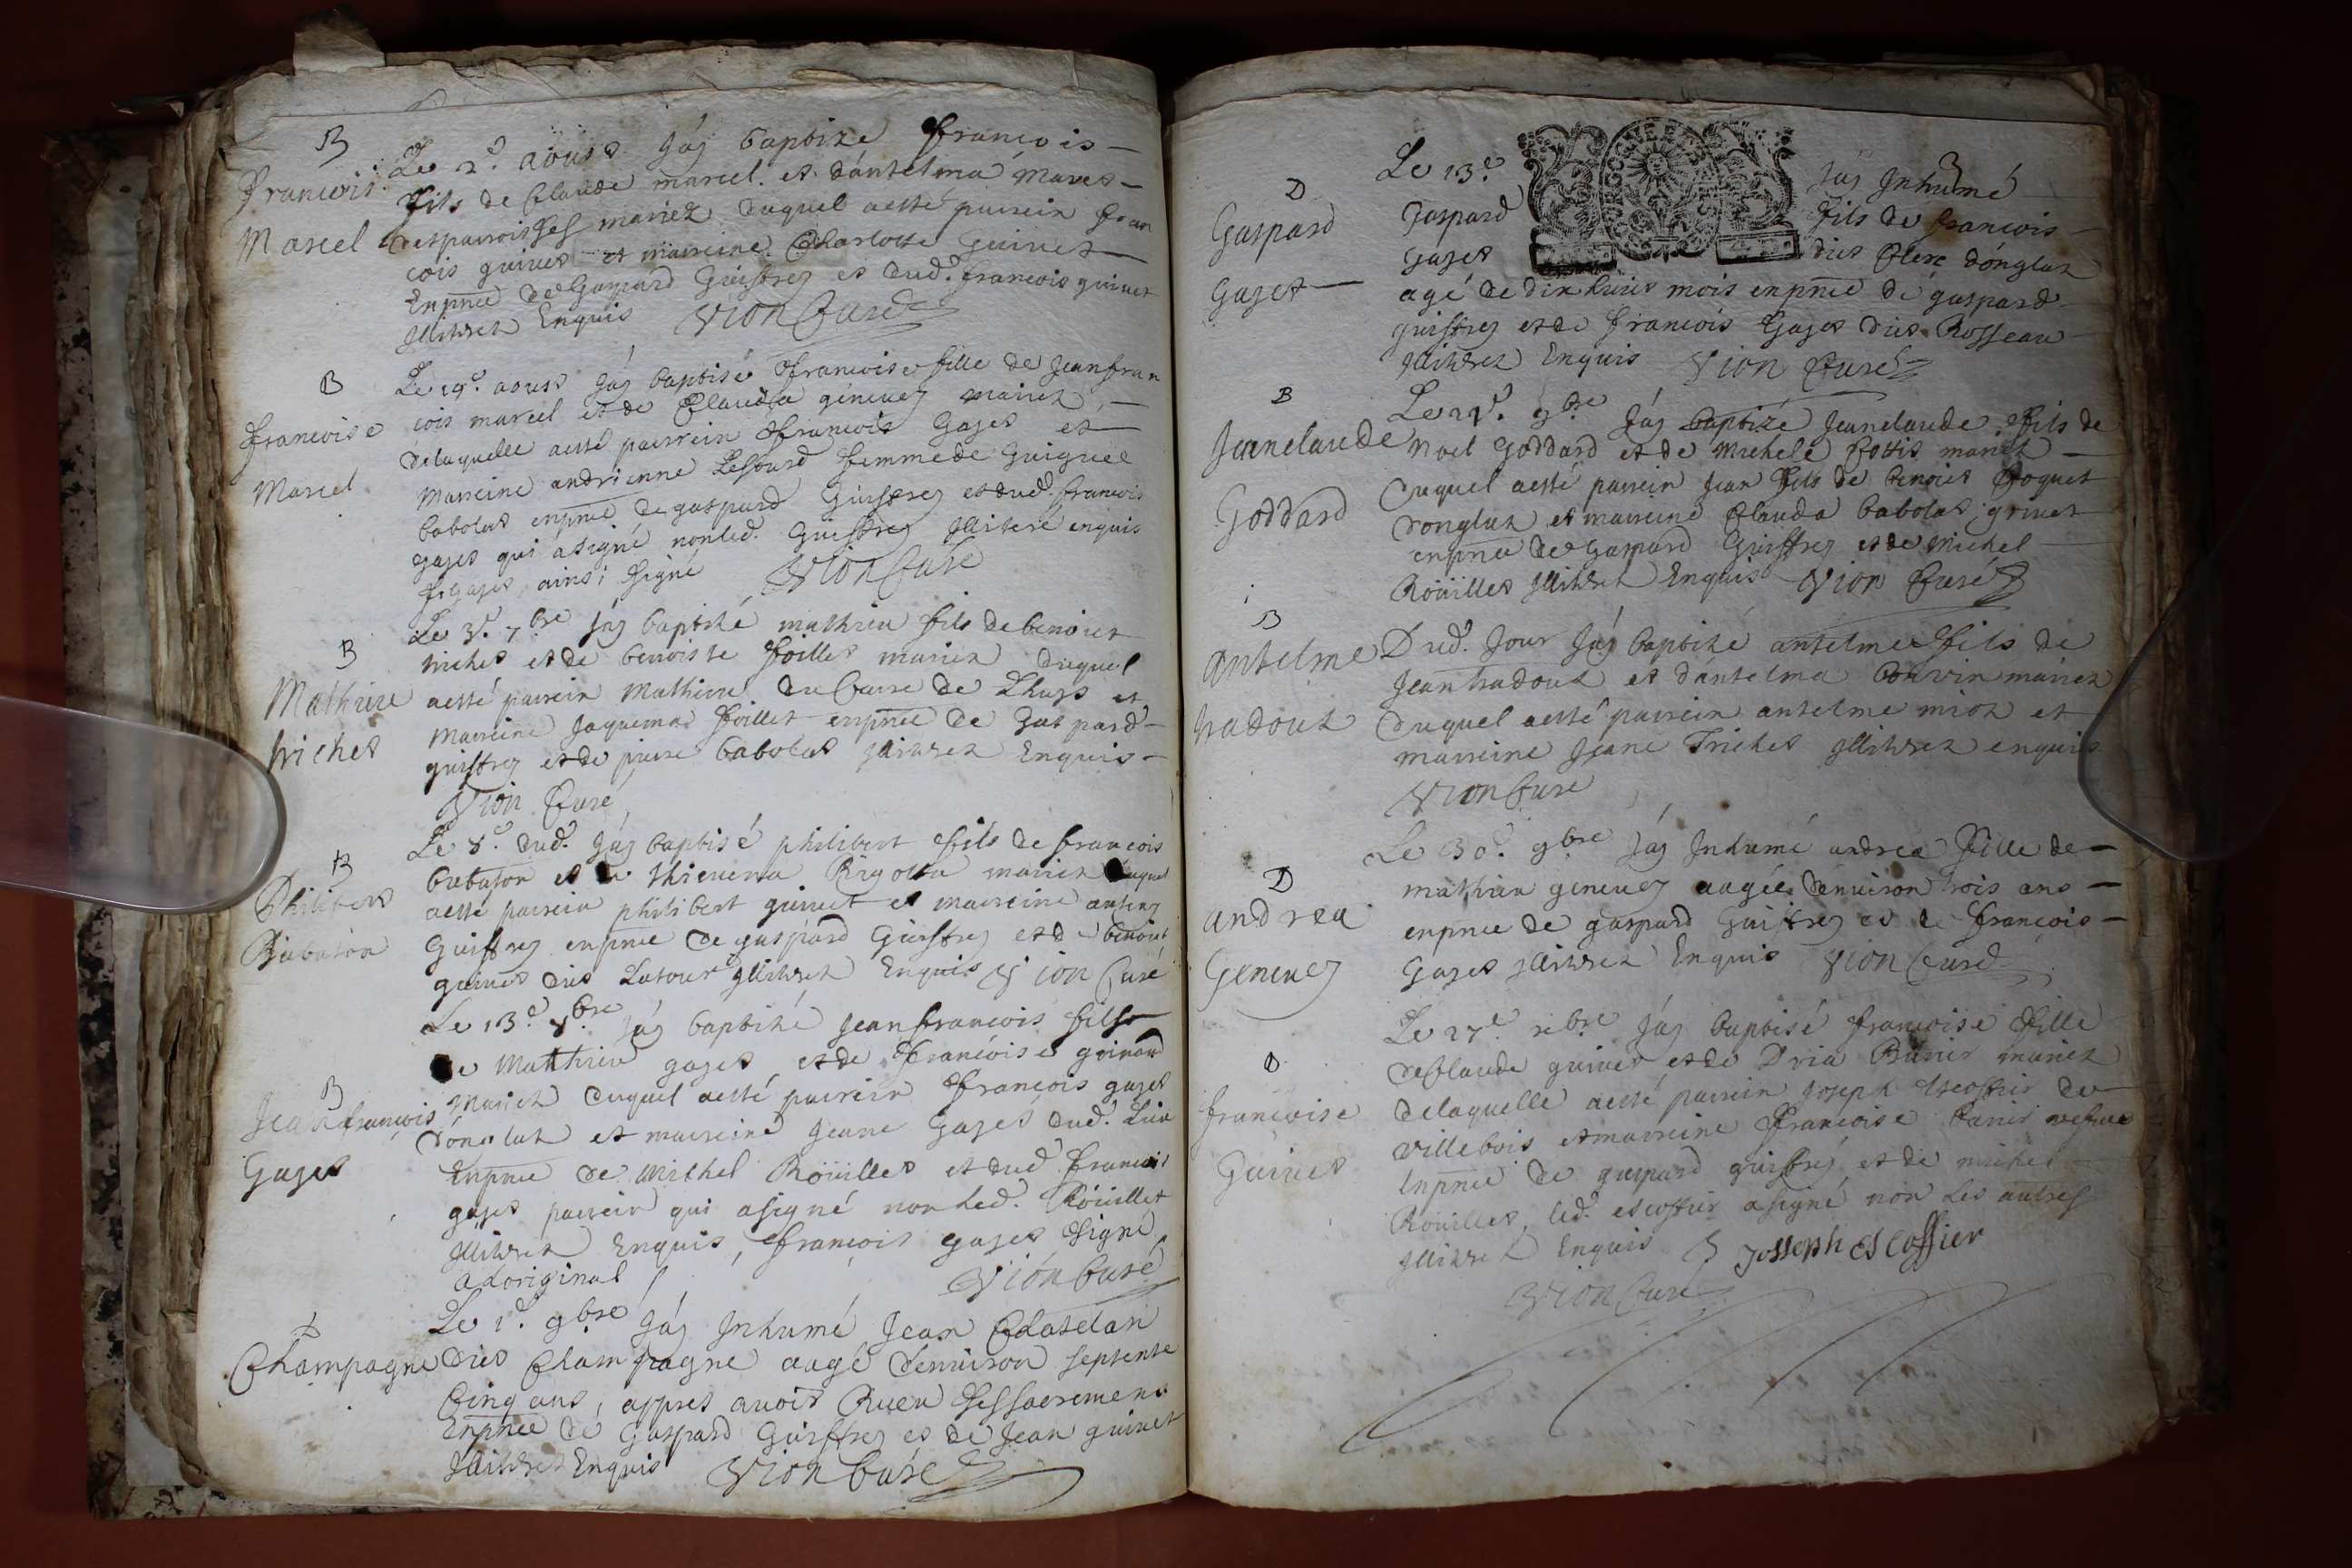 B
François
Marcel
Le 2.e aoust Jáy baptize François
fils de Claude marcel. et d'antelma Mares
desparroisses mariez duquel aesté parrein fran
cois guinet et marreine Charlotte Guinet
Enpnce de Gaspard Guistrey et dud. francois guinet
Illitrez Enquis Vion Curé
B
francoise
Marcel
Le 19.e aoust Jáy baptisé francoise fille de Jeanfran
cois marcel et de Claudia génevey mariez
delaquelle aesté parrein francois Gaget et
Marreine andrienne Lesourd femme de Guiguel
babolat enpnce de gaspard Guistrey et dud. francois
Gaget qui a signé nonled. Guistrey Illiteré enquis
f. gaget ainsi signé Vion Curé
B
Mathieu
trichet
Le 3.e 7bre Jáy baptisé mathieu fils de benoiet
trichet et de benoiste foillet mariez duquel
aesté parrein Mathieu de Lhuys et
Marreine Jaquema foillet enpnce de Gaspard
guistrey et de pierre babolat Illitrez Enquis
Vion Curé
B
Philibert
Le 8.e dud. Jáy baptisé philibert fils de francois
et thievena Rigottu mariez duquel
aesté parrein philibert guinet et marreine
Guistrey enpnce de gaspard Guistrey et de benoiet
guinet dit Latour Illitrez Enquis Vion Curé
B
Jeanfrancois
Gaget
Le 13.e 8bre Jáy baptisé Jeanfrancois fils
de Matthieu gaget et de francoise guinand
Mariez duquel aesté parrein francois gaget
dónglat et marreine Jeane Gaget dud. Lieu
Enpnce de Michel Roüillet et dud francois
gaget parrein qui asigné nonled. Roüillet
Illitrez Enquis, francois gaget signé
adoriginal Vion Curé
D
Champagne
Le 1.e 9bre Jáy Inhumé Jean Chatelan
dit Champagne aagé denuiron septente
Cinq ans, appres auoir Receu sessacremens
Enpnce de Gaspard Guistrey et de Jean guinet
Illitrez Enquis Vion Curé
D
Gaspard
Gaget
Le 13.e Jáy Inhumé
Gaspard fils de francois
Gaget dit Clerc dónglat
agé de dix huict mois enpnce de gaspard
guistrey et de francois Gaget dit Rosseau
Illitrez Enquis Vion Curé
B
Jeanclaude
Goddard
Le 9bre Jáy baptizé Jeanclaude fils de
Noel Goddard et de Michele Pottis mariez
duquel aesté parrein Jean fils de benoiet Poguet
donglat et marreine Clauda babolat grinet
enpnce de Gaspard Guistrey et de Michel
Roüillet Illitrez Enquis Vion Curé
B
antelme
tradout
Dud. Jour Jáy baptizé antelme fils de
Jean tradout et d'antelma bonvin mariez
duquel aesté parrein antelme mioz et
marreine Jeane Trichet Illitrez enquis
Vion Curé
D
andrea
Geneuey
Le 30.e 9bre Jáy Inhumé andréa fille de
mathieu geneuey aagée denuiron trois ans
enpnce de gaspard Guistrey et de francois
Gaget Illitrez Enquis Vion Curé
B
francoise
Guinet
Le 27.e xbre Jáy baptisé francoise fille
de Claude guinet et de Dria mariez
delaquelle aesté parrein Joseph Escoffier de
villebois et marreine francoise vefue
Enpnce de gaspard guistrey et de michel
Roüillet, led. escoffier a signé non Les autres
Illitrez Enquis Josseph Escoffier
Vion Curé